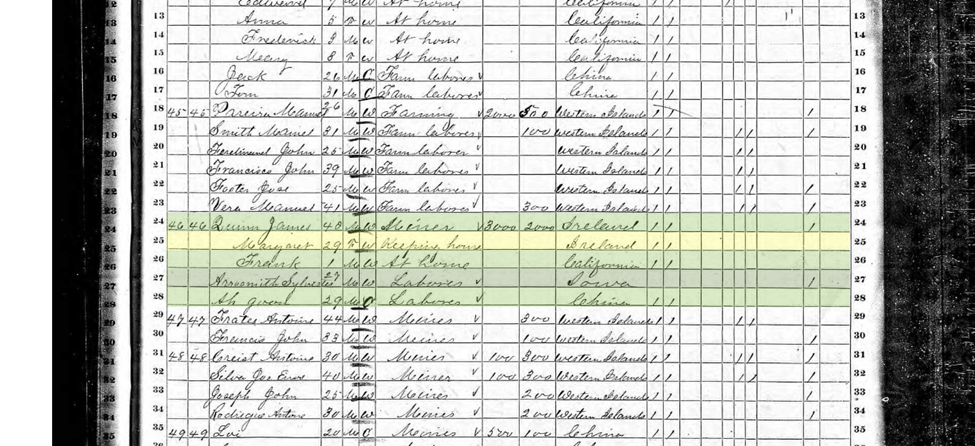 12 Edward 7 M W At home California 1 1
13 Anna 5 F W At home California 1 1 13
14 Frederick 9 M W At home California 1 1 14
15 Mary 8 F W At home California 1 1 15
16 Jack 26 M C Farm laborer China 1 1 16
17 Tom 31 M C Farm laborer China 1 1 17
18 45 45 Pereira Manuel 36 M W Farming 2000 500 Western Islands 1 1 1 18
19 Smith Manuel 31 M W Farm laborer 100 Western Islands 1 1 1 1 1 19
20 Ferdinand John 25 M W Farm laborer Western Islands 1 1 1 1 20
21 Francisco John 39 M W Farm laborer Western Islands 1 1 1 1 21
22 Foster Jose 25 M W Farm laborer Western Islands 1 1 1 1 1 22
23 Vera Manuel 41 M W Farm laborer 300 Western Islands 1 1 1 1 1 23
24 46 46 Quinn James 48 M W Miner 3000 2000 Ireland 1 1 1 24
25 Margaret 29 F W Keeping house Ireland 1 1 25
26 Frank 1 M W At home California 26
27 Arrosmith Sylvester 27 M W Laborer Iowa 1 27
28 Ah 29 M C Laborer China 1 1 28
29 47 47 Frates Antoine 44 M W Miner 300 Western Islands 1 1 1 1 29
30 Francis John 33 M W Miner 100 Western Islands 1 1 1 30
31 48 48 Antoine 30 M W Miner 100 300 Western Islands 1 1 1 1 1 1 31
32 Silva Joe 40 M W Miner 100 300 Western Islands 1 1 1 1 1 32
33 Joseph John 25 M W Miner 200 Western Islands 1 1 1 33
34 Antoine 30 M W Miner 200 Western Islands 1 1 1 34
35 49 49 Loi 20 M C Miner 500 100 China 1 1 35